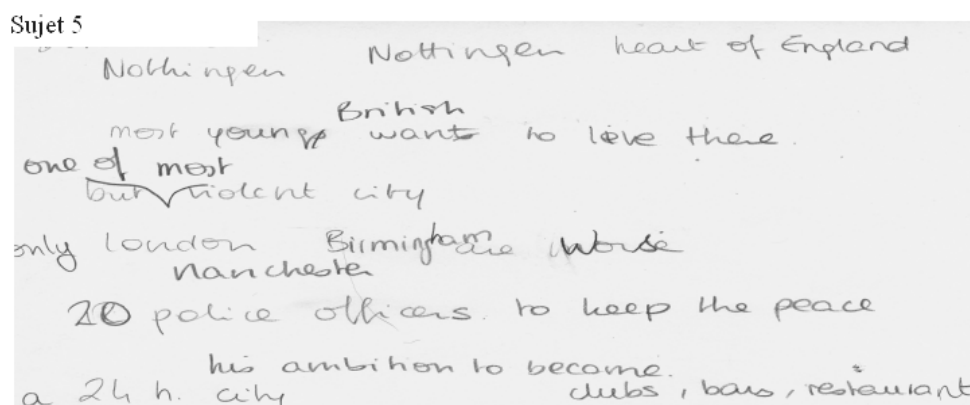 Sujet 5
Nothingen Nottingen heart of England
British
most young want to live there.
one of most
but violent city
only london Birmingham are worse
Manchester
20 police officers. to keep the peace
his ambition to become.
a 24 h. city clubs, bars, restaurant